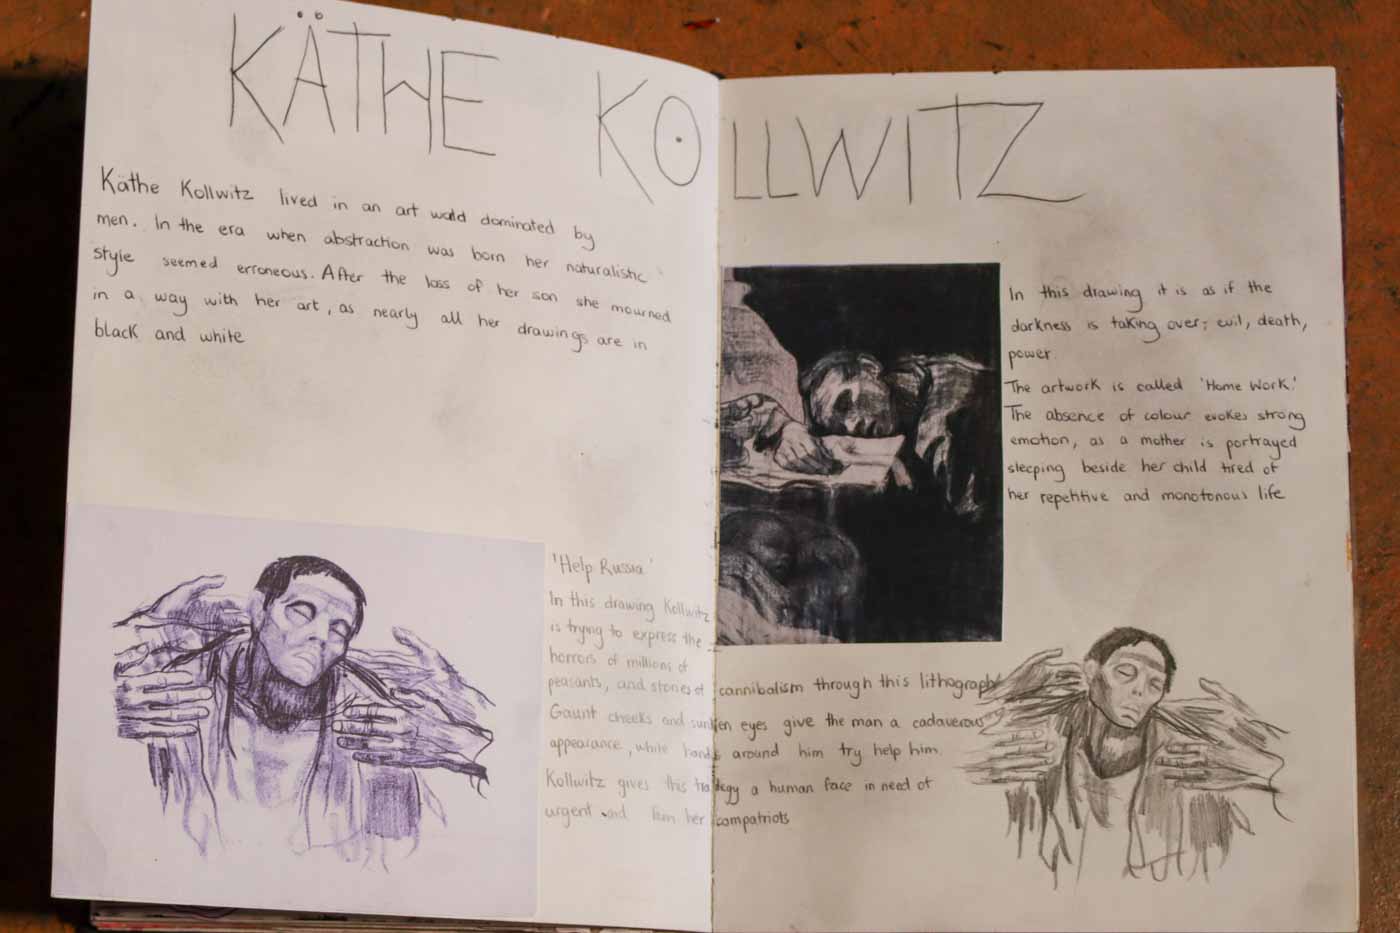 KÄTHE KOLLWITZ
Käthe Kollwitz lived in an art world dominated by
men. In the era when abstraction was born her naturalistic
style seemed erroneous. After the loss of her son she mourned
in a way with her art, as nearly all her drawings are in
black and white
In this drawing it is as if the
darkness is taking over; evil, death,
power.
The artwork is called 'Home Work.'
The absence of colour evokes strong
emotion, as a mother is portrayed
sleeping beside her child tired of
her repetitive and monotonous life
'Help Russia'
In this drawing Kollwitz
is trying to express the
horrors of millions of
peasants, and stories of cannibalism through this lithograph
Gaunt cheeks and sunken eyes give the man a cadaverous
appearance, while hands around him try help him.
Kollwitz gives this tradegy a human face in need of
urgent aid her compatriots